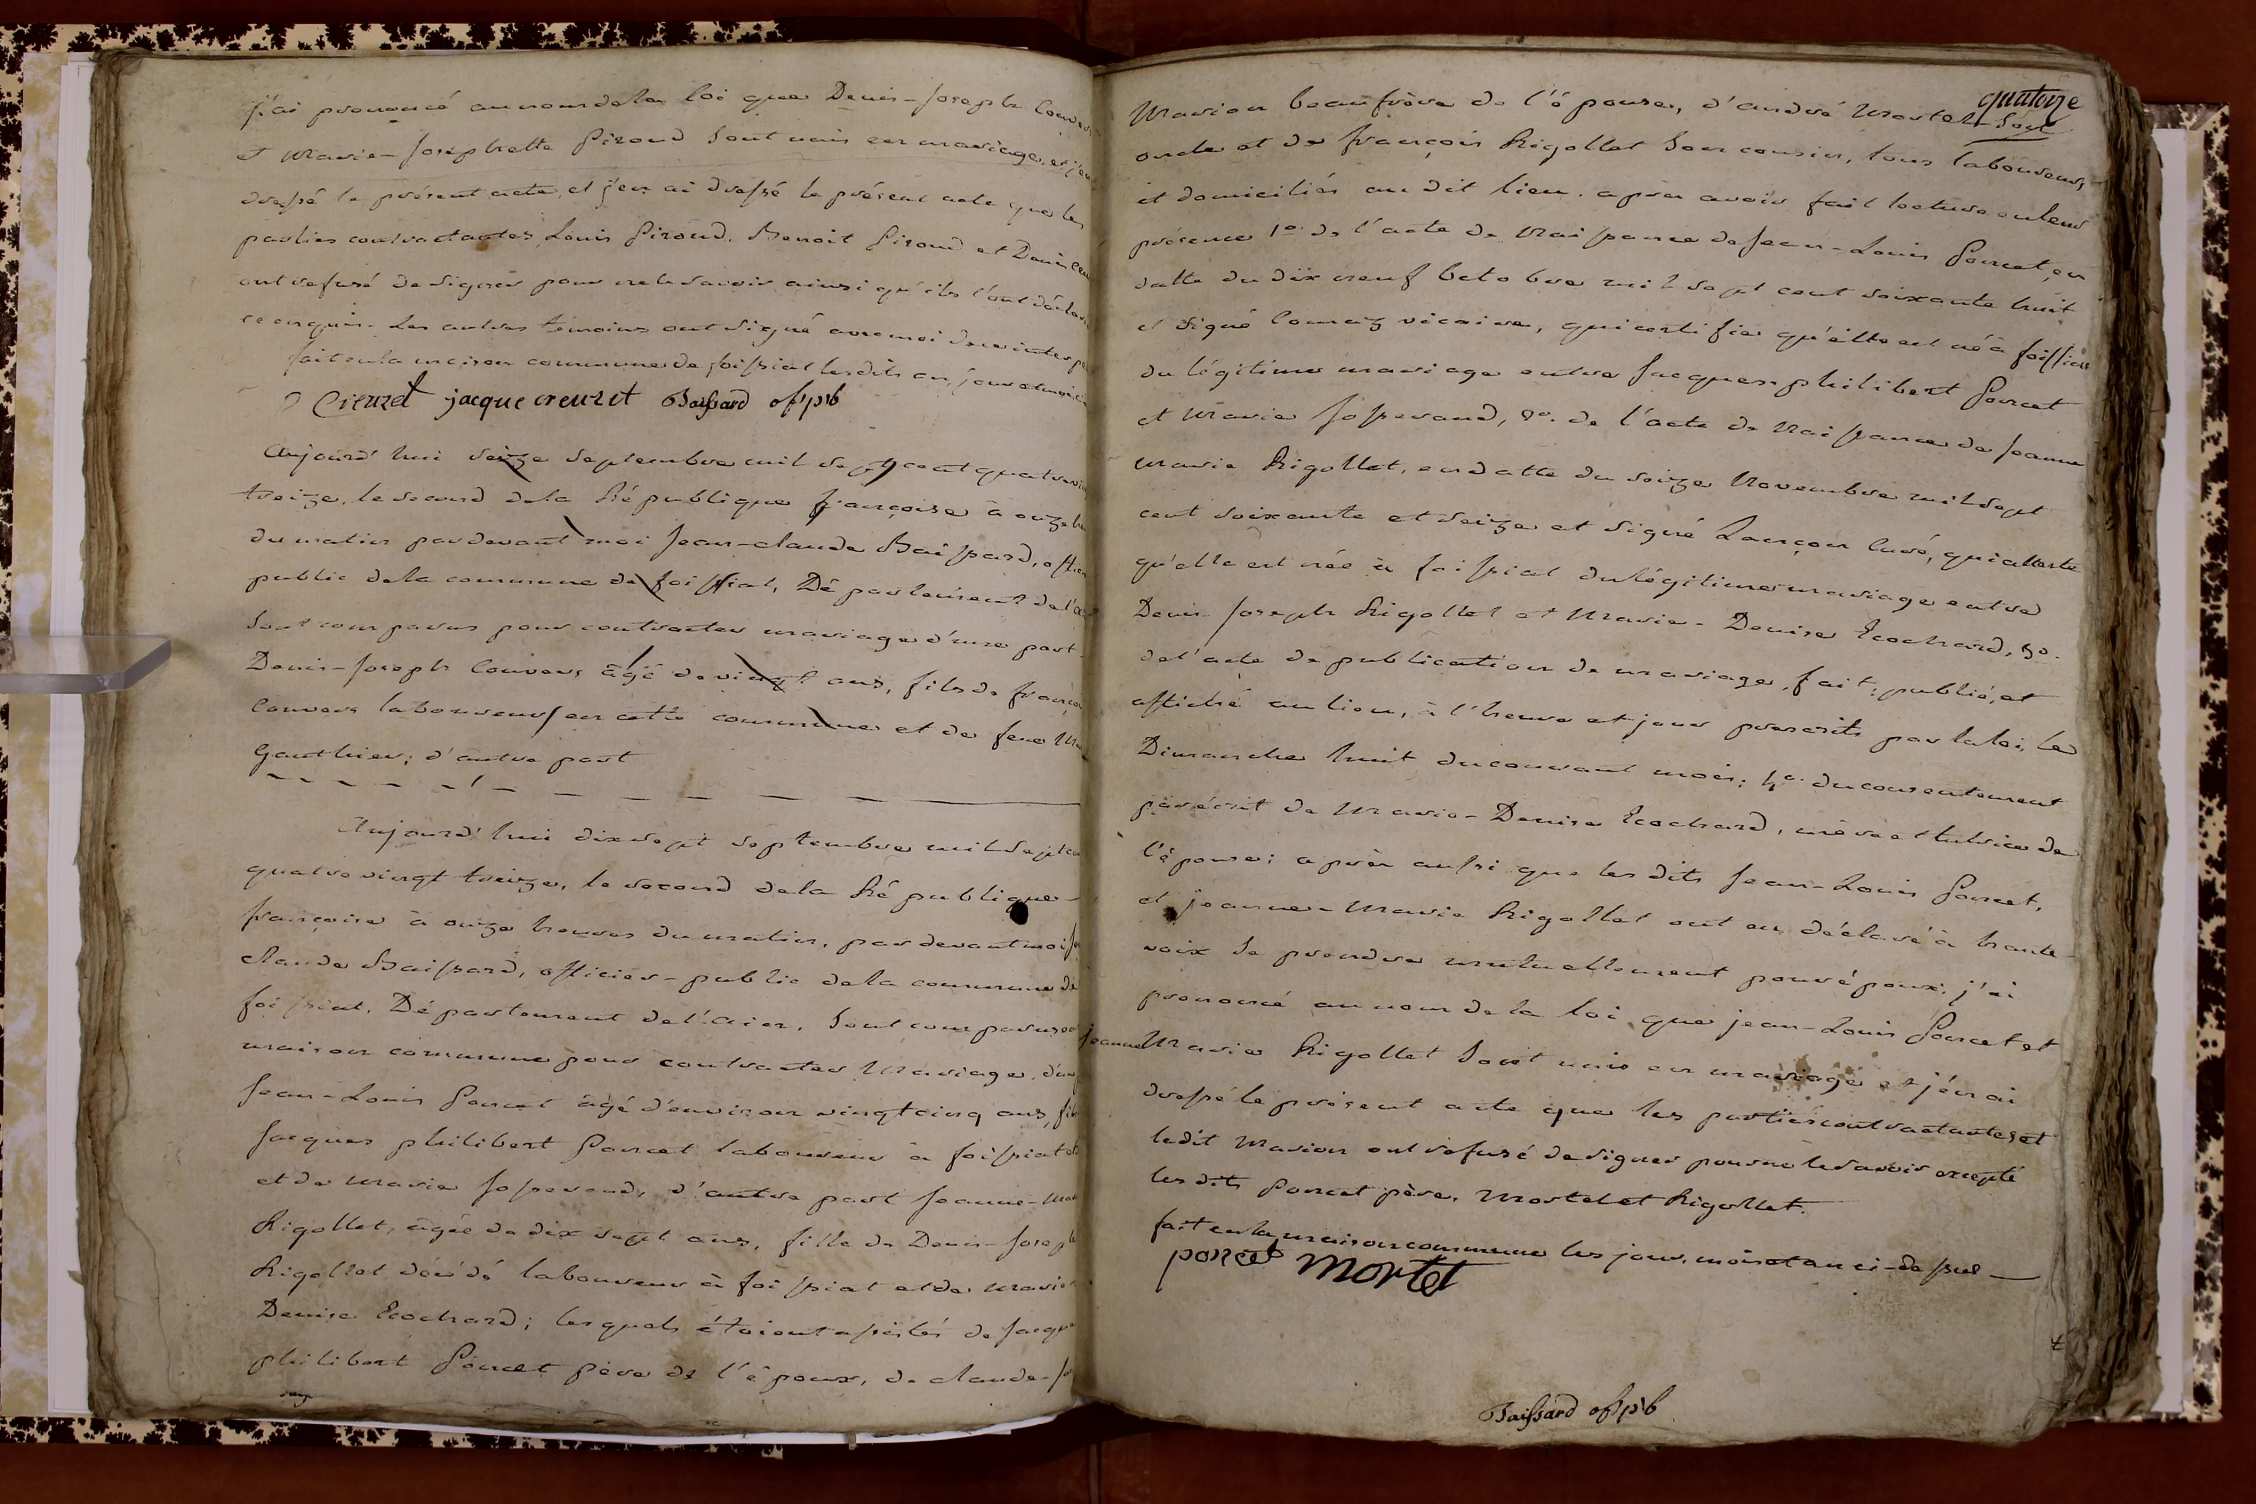 j'ai prononcé au nom de la loi que Denis-Joseph Convers
et Marie-Josephette Piroud sont unis en mariage, et j'en
dressé le présent acte, et j'en ai dressé le présent acte que les
parties contractantes, Louis Piroud, Benoit Piroud et Denis
ont refusé de signer pour ne le savoir ainsi qu'ils l'ont déclaré
ce enquis. Les autres témoins ont signé avec moi
fait en la maison commune de foissiat lesdits an, jour et mois
Creuzet jacque creuzet Baissard of. pb
Aujourd'hui seize septembre mil sept cent quatre vin
treize, le second de la République françoise à onze heu
du matin par devant moi Jean-claude Baissard, offici
public de la commune de foissiat, Département de l'ain
sont comparus pour contracter mariage d'une part
Denis-Joseph Convers âgé de vingt ans, fils de franço
Convers laboureur en cette commune et de feue Ma
Gauthier; d'autre part
Aujourd'hui dix sept septembre mil sept ce
quatre vingt treize, le second de la République
françoise à onze heures du matin, par devant moi Je
claude Baissard, officier-public de la commune de
foissiat, Département de l'ain, sont comparus en
maison commune pour contracter Mariage, d'un
Jean-Louis Poncet âgé d'environ vingt cinq ans, fils
Jacques philibert Poncet laboureur à foissiat
et de Marie Josserand, d'autre part Jeanne-Mar
Rigollet, âgée de dix sept ans, fille de Denis-Joseph
Rigollet décédé laboureur à foissiat et de Marie
Denise Ecochard; lesquels étoient assistés de Jacque
philibert Poncet père de l'époux, de claude-Jo
quatorze
Marion beaufrère de l'épouse, d'andré Mortel son
oncle et de françois Rigollet son cousin, tous laboureurs
et domiciliés au dit lieu. après avoir fait lecture en leur
présence 1o. de l'acte de Naissance de Jean-Louis Poncet, en
datte du dix neuf octobre mil sept cent soixante huit
et signé vicaire, qui certifie qu'il est né à foissiat
du légitime mariage entre Jacques philibert Poncet
et Marie Josserand, 2o. de l'acte de Naissance de Jeanne
Marie Rigollet, en datte du seize Novembre mil sept
cent soixante et seize et signé Lançon Curé, qui atteste
qu'elle est née à foissiat du légitime mariage entre
Denis Joseph Rigollet et Marie-Denise Ecochard, 3o.
de l'acte de publication de mariage, fait, publié, et
affiché au lieu, à l'heure et jour prescrits par la loi, le
Dimanche huit du courant mois; 4o. du consentement
par écrit de Marie-Denise Ecochard, mère et tutrice de
l'épouse; après aussi que les dits Jean-Louis Poncet,
et jeanne-Marie Rigollet ont eu déclaré à haute
voix se prendre mutuellement pour époux, j'ai
prononcé au nom de la loi que jean-Louis Poncet et
Jeanne Marie Rigollet sont unis en mariage et j'en ai
dressé le présent acte que les parties contractantes et
ledit Marion ont refusé de signer pour ne le savoir excepté
les dits Poncet père, Mortel et Rigollet.
fait en la maison commune les jour, mois et an ci-dessus
poncet Mortel
Baissard of. pb